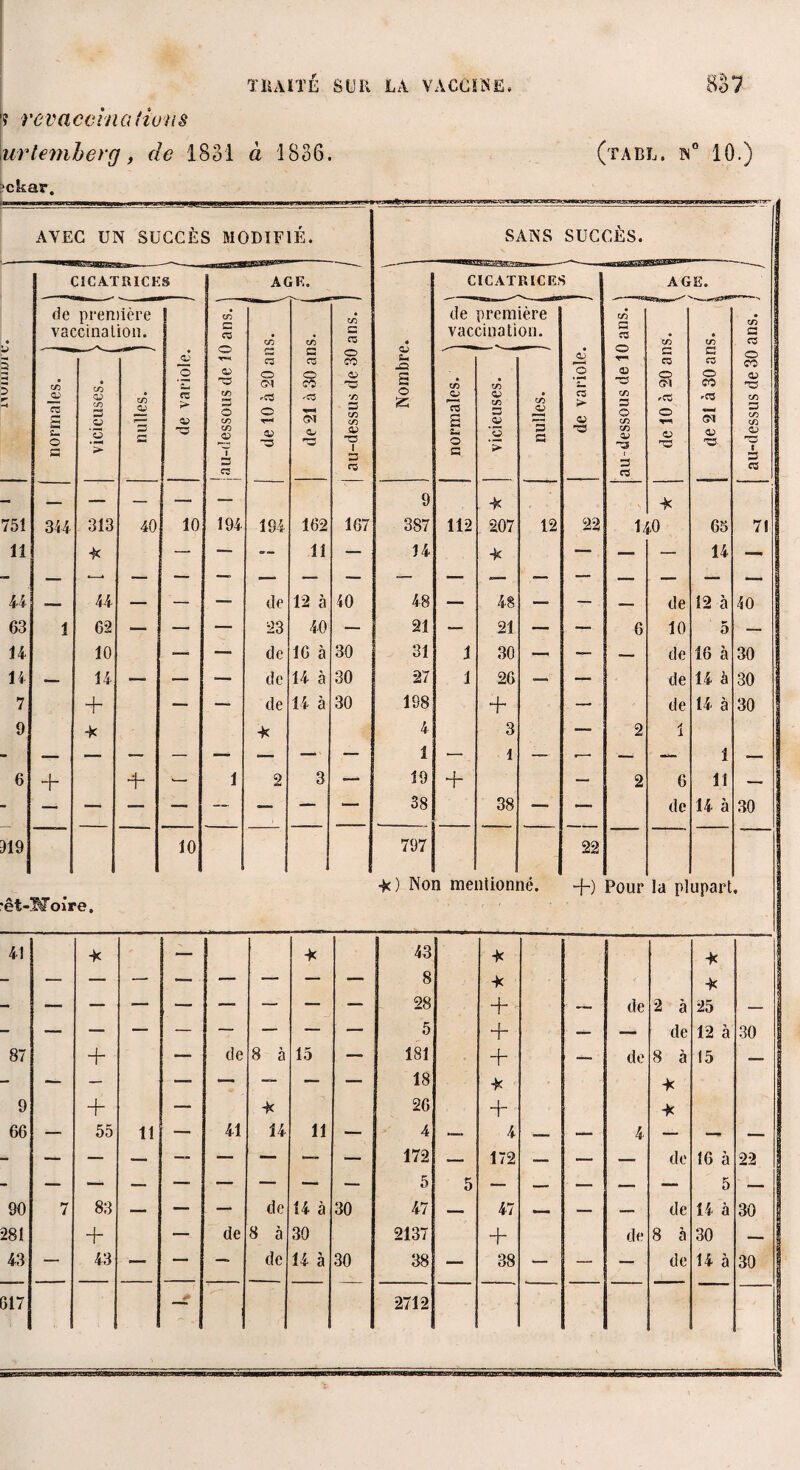 TRAITÉ SUR LA VACCINE. 837
revaccinations
urtemberg, de 1831 à 1836. (TABL. N° 10.)
ckar.
AVEC UN SUCCÈS MODIFIÉ. SANS SUCCÈS.
CICATRICES AGE. Nombre. CICATRICES AGE.
de première vaccination. de variole. au-dessous de 10 ans. de 10 à 20 ans. de 21 à 30 ans. au-dessus de 30 ans. de première vaccination. de variole. au-dessous de 10 ans. de 10 à 20 ans. de 21 à 30 ans. au-dessus de 30 ans.
normales. vicieuses. nulles. normales. vicieuses. nulles.
— — — — — — 9 * *
751 344 313 40 10 194 194 162 167 387 112 207 12 22 140 65 71
11 * — — — 11 — 14 * — — — 14 —
— — — — — — — — — — — — — — — — — —
44 — 44 — — — de 12 à 40 48 — 48 — — — de 12 à 40
63 1 62 — — — 23 40 — 21 — 21 — — 6 10 5 —
14 10 — — de 16 à 30 31 1 30 — — — de 16 à 30
14 — 14 — — — de 14 à 30 27 1 26 — — de 14 à 30
7 + — — de 14 à 30 198 + — de 14 à 30
9 * * 4 3 — 2 1
- — — — — — — — — 1 — 1 — — — — 1 —
6 + + — 1 2 3 — 19 + — 2 6 11 —
- — — — — — — — — 38 38 — — de 14 à 30
919 10 797 22
*) Non mentionné. +) Pour la plupart.
rêt-Noire.
41 * — * 43 * *
— — — — — — — — — 8 * *
— — — — — — — — — 28 + — de 2 à 25 —
— — — — — — — — — 5 + — — de 12 à 30
87 + — de 8 à 15 — 181 + — de 8 à 15 —
— — — — — — — — 18 * *
9 + — * 26 + *
66 — 55 11 — 41 14 11 — 4 — 4 — — 4 — — —
— — — — — — — — — 172 — 172 — — — de 16 à 22
— — — — — — — — — 5 5 — — — — — 5 —
90 7 83 — — — de 14 à 30 47 — 47 — — — de 14 à 30
281 + — de 8 à 30 2137 + de 8 à 30 —
43 — 43 — — — de 14 à 30 38 — 38 — — — de 14 à 30
617 — 2712